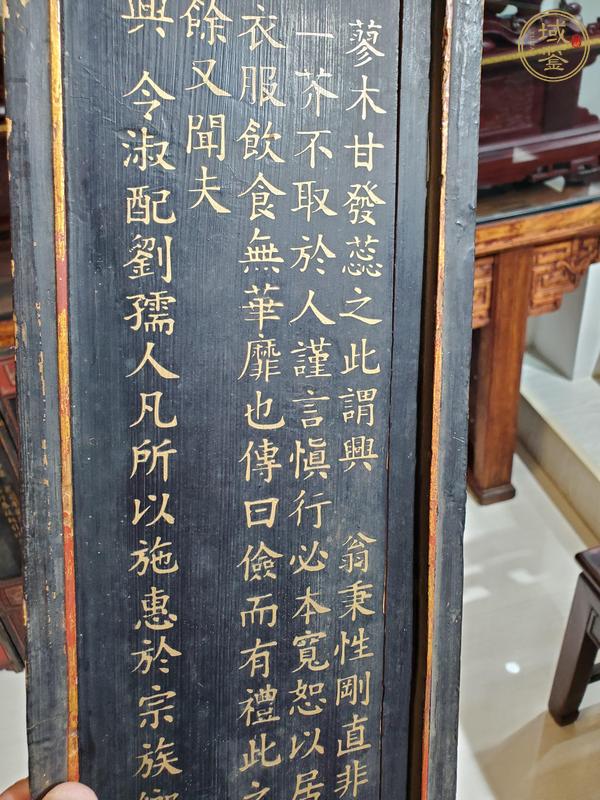 蓼木甘發蕊之此謂興 翁秉性剛直非
一芥不取於人謹言慎行必本寬恕以居
衣服飲食無華靡也傳曰儉而有禮此之
餘又聞夫
興 令淑配劉孺人凡所以施惠於宗族鄉
域鉴